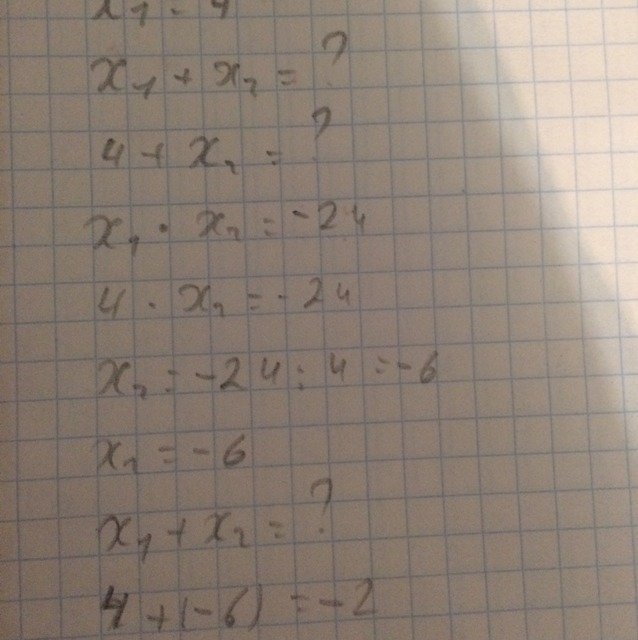 x₁ + x₂ = ?
4 + x₂ = ?
x₁ · x₂ = -24
4 · x₂ = -24
x₂ = -24 : 4 = -6
x₂ = -6
x₁ + x₂ = ?
4 + (-6) = -2